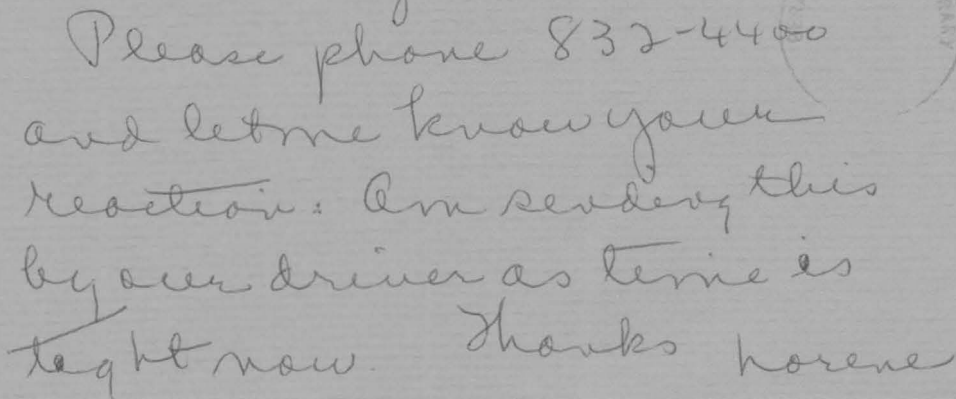 Please phone 832-4400
and let me know your
reaction. Am sending this
by our driver as time is
tight now. Thanks Norene